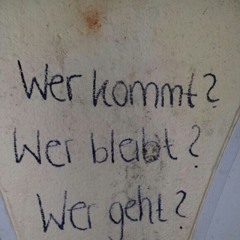 Wer kommt?
Wer bleibt?
Wer geht?